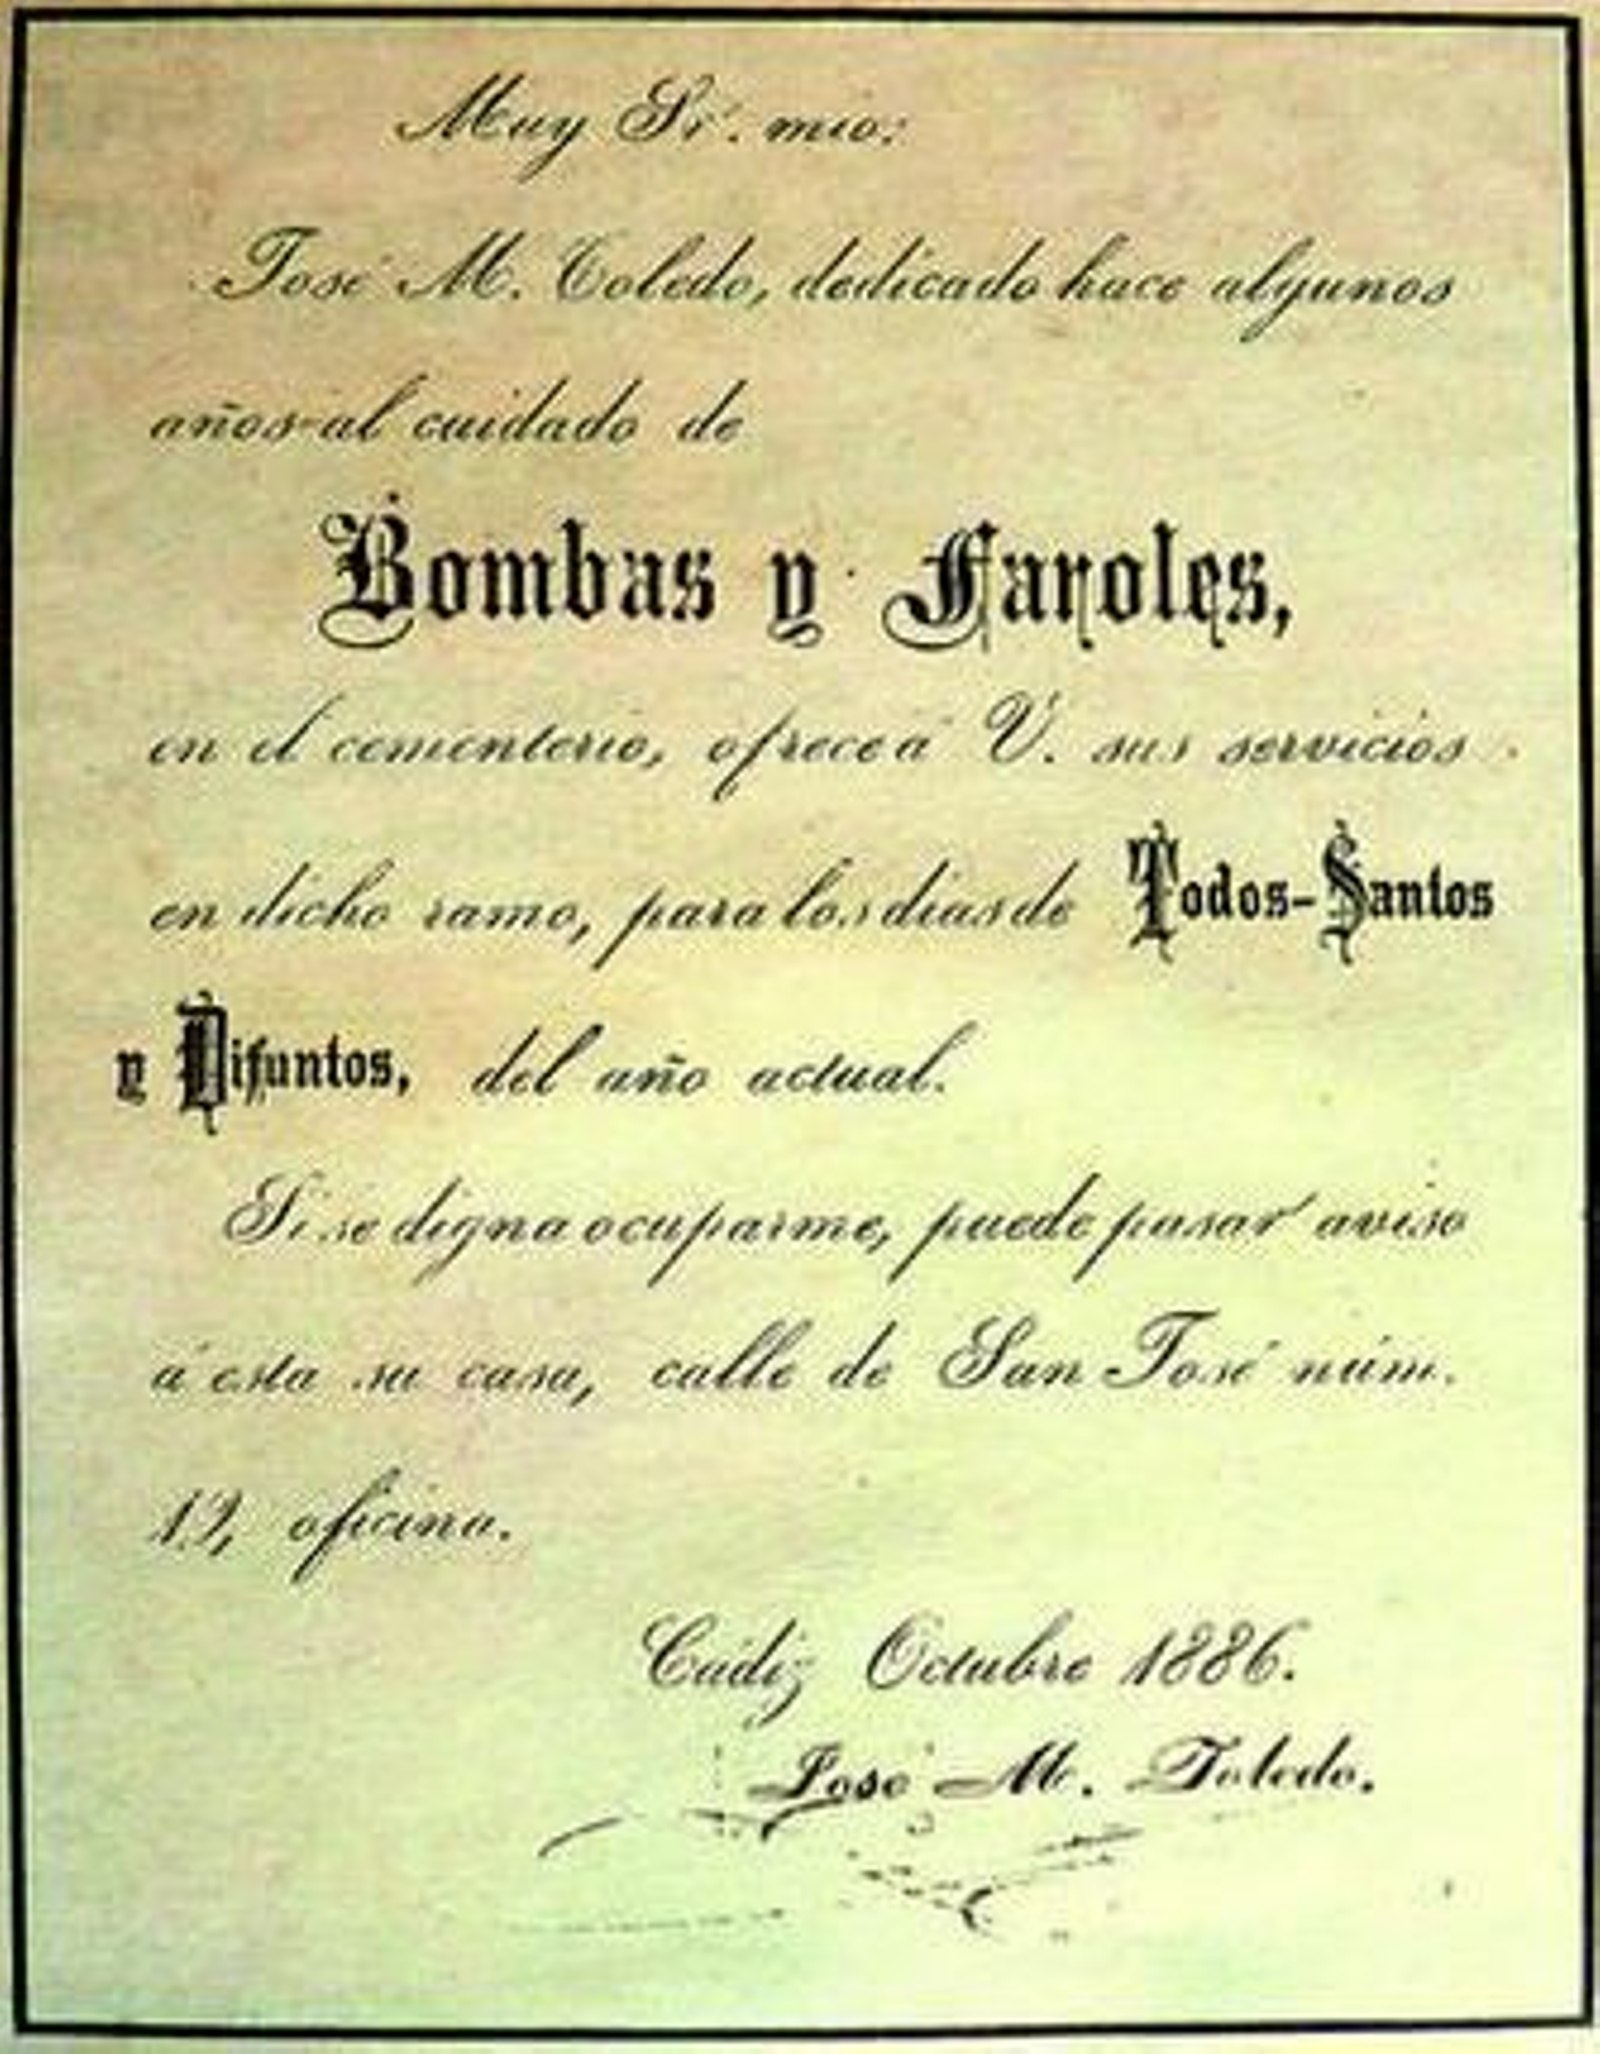 Muy Sr. mio:
José M. Toledo, dedicado hace algunos
años al cuidado de
Bombas y Faroles,
en el cementerio, ofrece á V. sus servicios
en dicho ramo, para los dias de Todos-Santos
y Difuntos, del año actual.
Si se digna ocuparme, puede pasar aviso
á esta su casa, calle de San José núm.
19, oficina.
Cádiz Octubre 1886.
José M. Toledo.